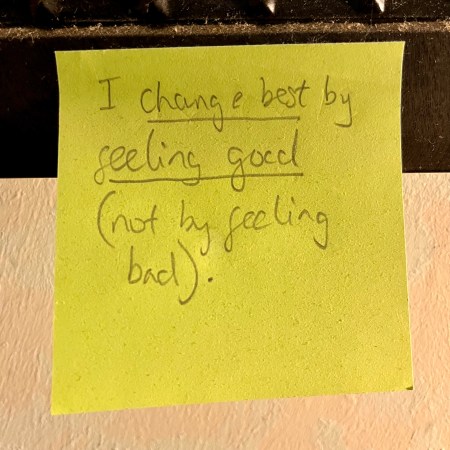 I change best by
feeling good
(not by feeling
bad).